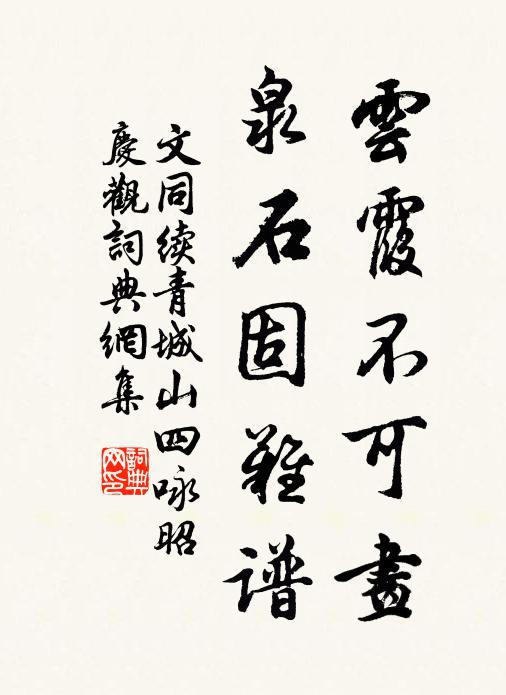 雲霞不可畫
泉石固難谱
文同续青城山四咏昭
慶觀詞典網集
詞典网印